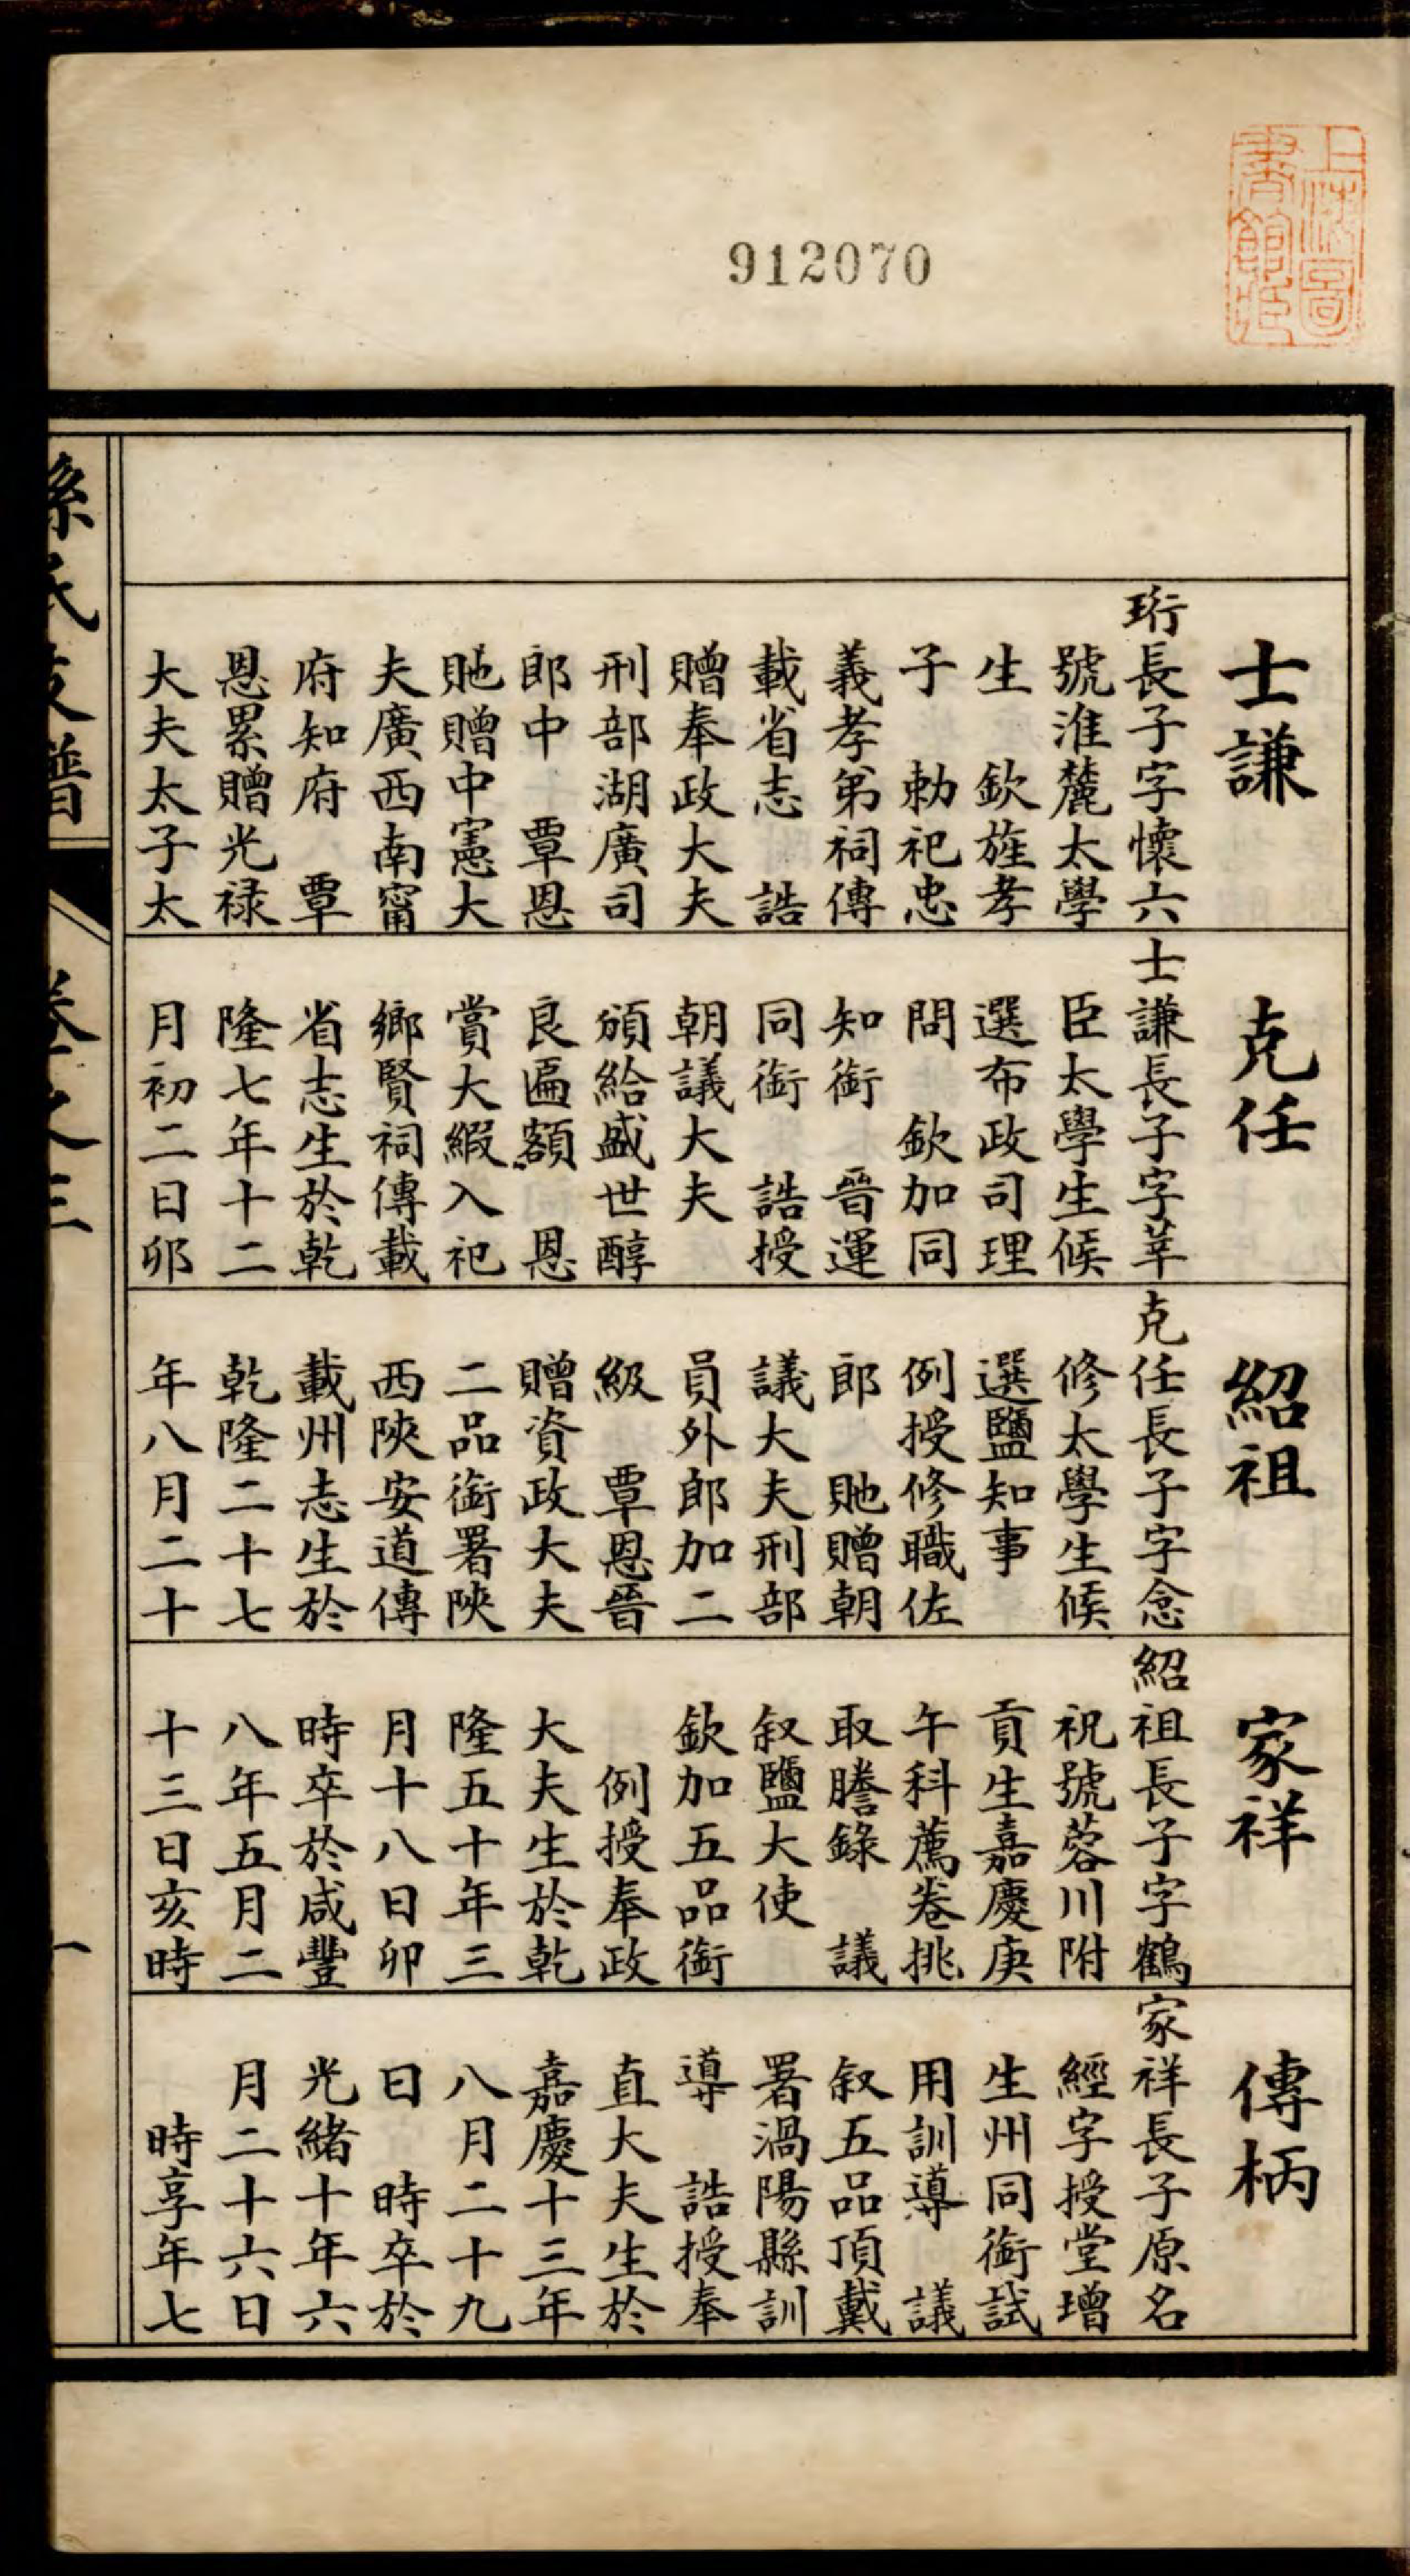 912070
上海圖
書館藏
士謙
珩長子字懷六
號淮麓太學
生 欽旌孝
子 勅祀忠
義孝弟祠傳
載省志 誥
贈奉政大夫
刑部湖廣司
郎中 覃恩
貤贈中憲大
夫廣西南甯
府知府 覃
恩累贈光禄
大夫太子太
克任
士謙長子字莘
臣太學生候
選布政司理
問 欽加同
知銜 晉運
同銜 誥授
朝議大夫
頒給盛世醇
良匾額 恩
賞大緞入祀
鄉賢祠傳載
省志生於乾
隆七年十二
月初二日卯
紹祖
克任長子字念
修太學生候
選鹽知事
例授修職佐
郎 貤贈朝
議大夫刑部
員外郎加二
級 覃恩晉
贈資政大夫
二品銜署陝
西陝安道傳
載州志生於
乾隆二十七
年八月二十
家祥
紹祖長子字鶴
祝號蓉川附
貢生嘉慶庚
午科薦卷挑
取謄錄 議
叙鹽大使
欽加五品銜
例授奉政
大夫生於乾
隆五十年三
月十八日卯
時卒於咸豐
八年五月二
十三日亥時
傳柄
家祥長子原名
經字授堂增
生州同銜試
用訓導 議
叙五品頂戴
署渦陽縣訓
導 誥授奉
直大夫生於
嘉慶十三年
八月二十九
日 時卒於
光緒十年六
月二十六日
時享年七
孫氏支譜 卷之三 一